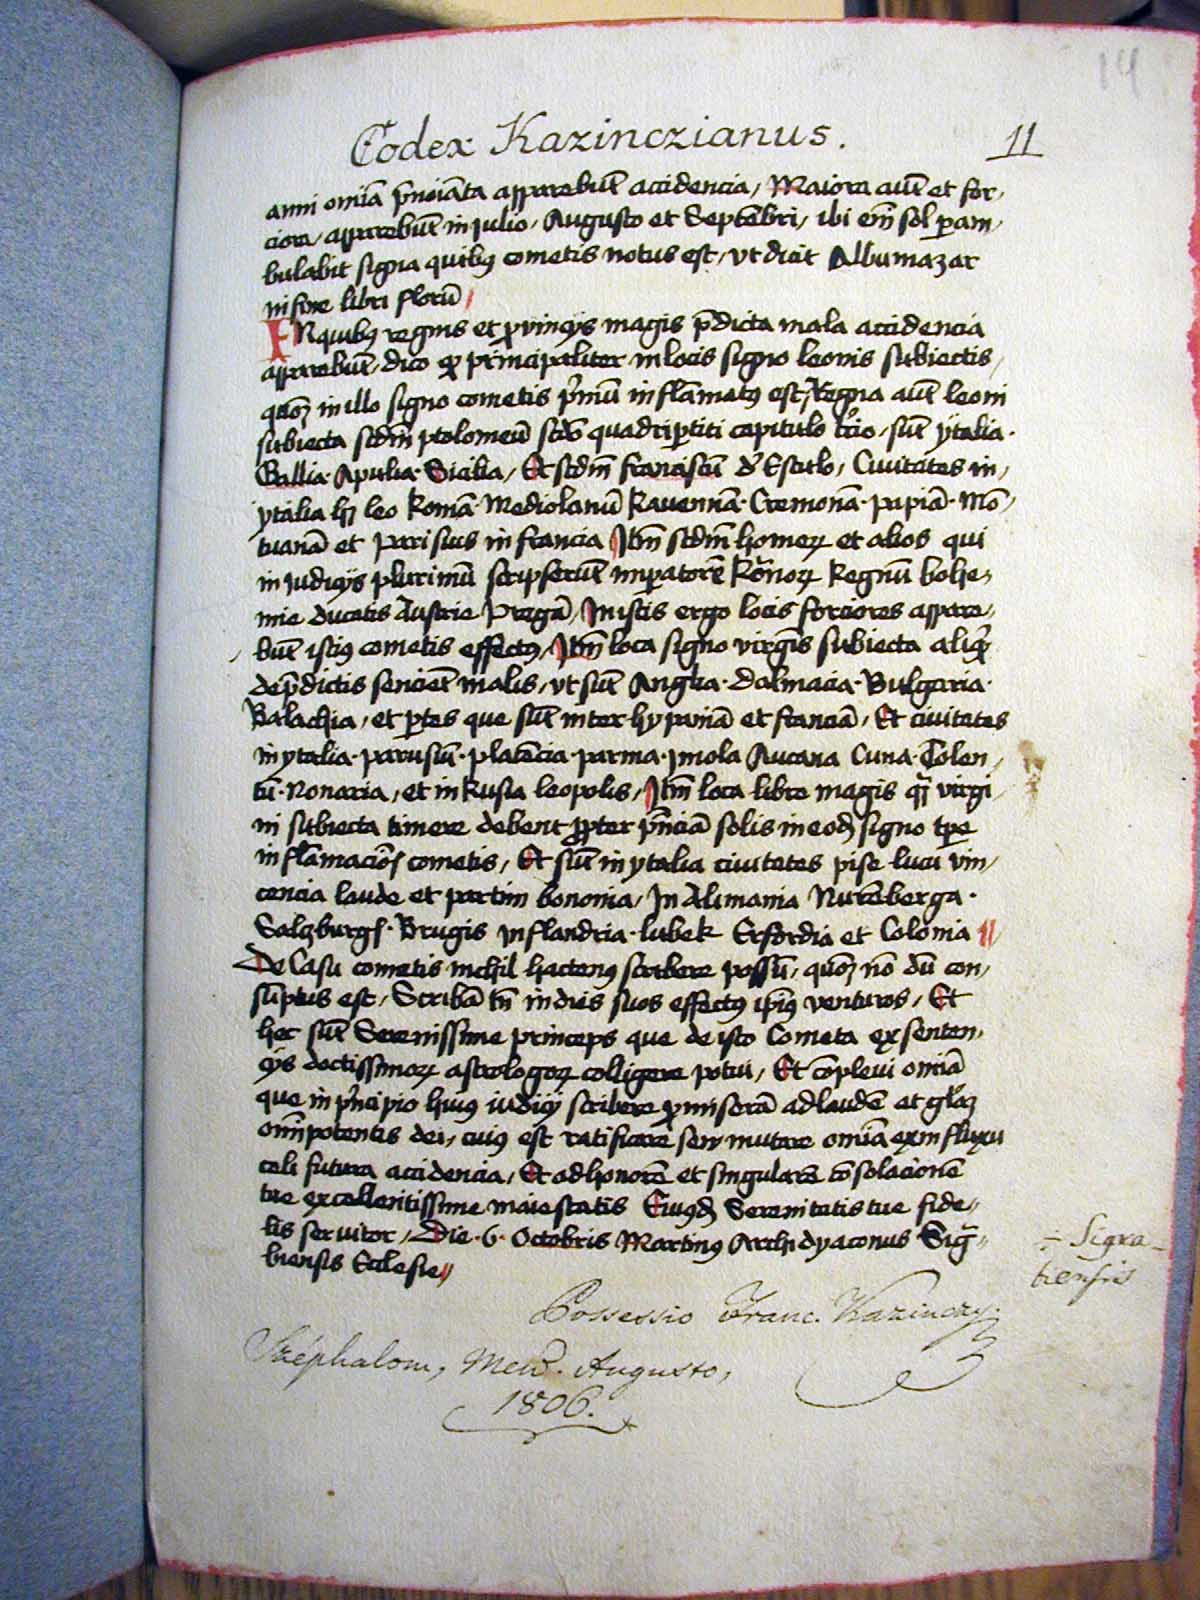 14
Codex Kazinczianus. 11
anni omiã p̃nciãta apparebũt accidencia / Maiora aũt et for-
ciora / apparebũt in Julio / Augusto et Septẽbri / ibi em̃ sol peram-
bulabit signa quibꝰ cometis notus est / vt dicit Albumazar
in fine libri florũ /
IN quibꝰ regnis et ꝓvincijs magis p̃dicta mala accidencia
apparebũt / dico ꝙ principaliter in locis signo leonis subiectis /
quoꝫ in illo signo cometis p̃mũ inflãmatꝰ est / Regna aũt leoni
subiecta scdm̃ ptolomeũ quadriꝑtiti capitulo tc̃io / sũt ytalia ·
Gallia · Apulia · Sicilia / Et scdm̃ franciscũ d Esculo / Civitates in /
ytalia hꝫ leo Romã · Mediolanũ Ravennã · Cremonã · papiã · Mõ /
tuanã et Parisius in francia Itm̃ scdm̃ homeꝝ et alios qui
in iudicijs plurimũ scripserũt imꝑatorẽ Rõnoꝝ Regnũ bohe-
mie ducatis Austrie Pragã / In istis ergo locis forciores appare-
bũt istiꝰ cometis effectꝰ / Itm̃ loca signo virgĩs subiecta aliꝙ
de p̃dictis sencient malis / vt sũt Anglia · Dalmacia · Bulgaria ·
Balachia / et ꝑtes que sũt inter hyspaniã et franciã / Et civitates
in ytalia · parusiũ · placẽcia · parma · Imola Aucana Cuna · Tolen /
tũ · Nonaria / et in Rusia leopolis / Itm̃ loca libre magis ꝙ virgi /
ni subiecta timere debent ꝓpter p̃nciã solis in eodꝫ signo tꝑe
inflãmaciõis cometis / Et sũt in ytalia civitates pise luca vin /
cencia laude et partim bononia / In Alimania Nurẽberga ·
Salzburgꝭ · Brugis in flandria · lubek Erfordia et Colonia
De Casu cometis nichil hactenꝰ scribere possũ / quoꝫ nõ dũ con /
sũptus est / Scribã tñ in dies suos effectꝰ ip̃iꝰ venturos / Et
hec sũt Serenissime princeps que de isto Cometa ex senten-
cijs doctissimoꝝ astrologoꝝ colligere potui / Et cõplevi omiã
que in p̃ncipio huiꝰ iudicij scribere ꝓmiserã ad laudẽ et gl̃aꝫ
om̃ipotentis dei / cuiꝰ est ratificare seu mutare omiã ex influxu
celi futura accidencia / Et ad honorẽ et singularẽ cõsolacionẽ
tue excellentissime maiestatis Eiusdꝫ Serenitatis tue fide-
lis servitor / Die · 6 · Octobris Martinꝰ Archidyaconus Sig̃-
biensis Ecclesie
÷ Sigra-
biensis
Possessio Franc. Kazinczy.
Széphalom, Men. Augusto,
1806.